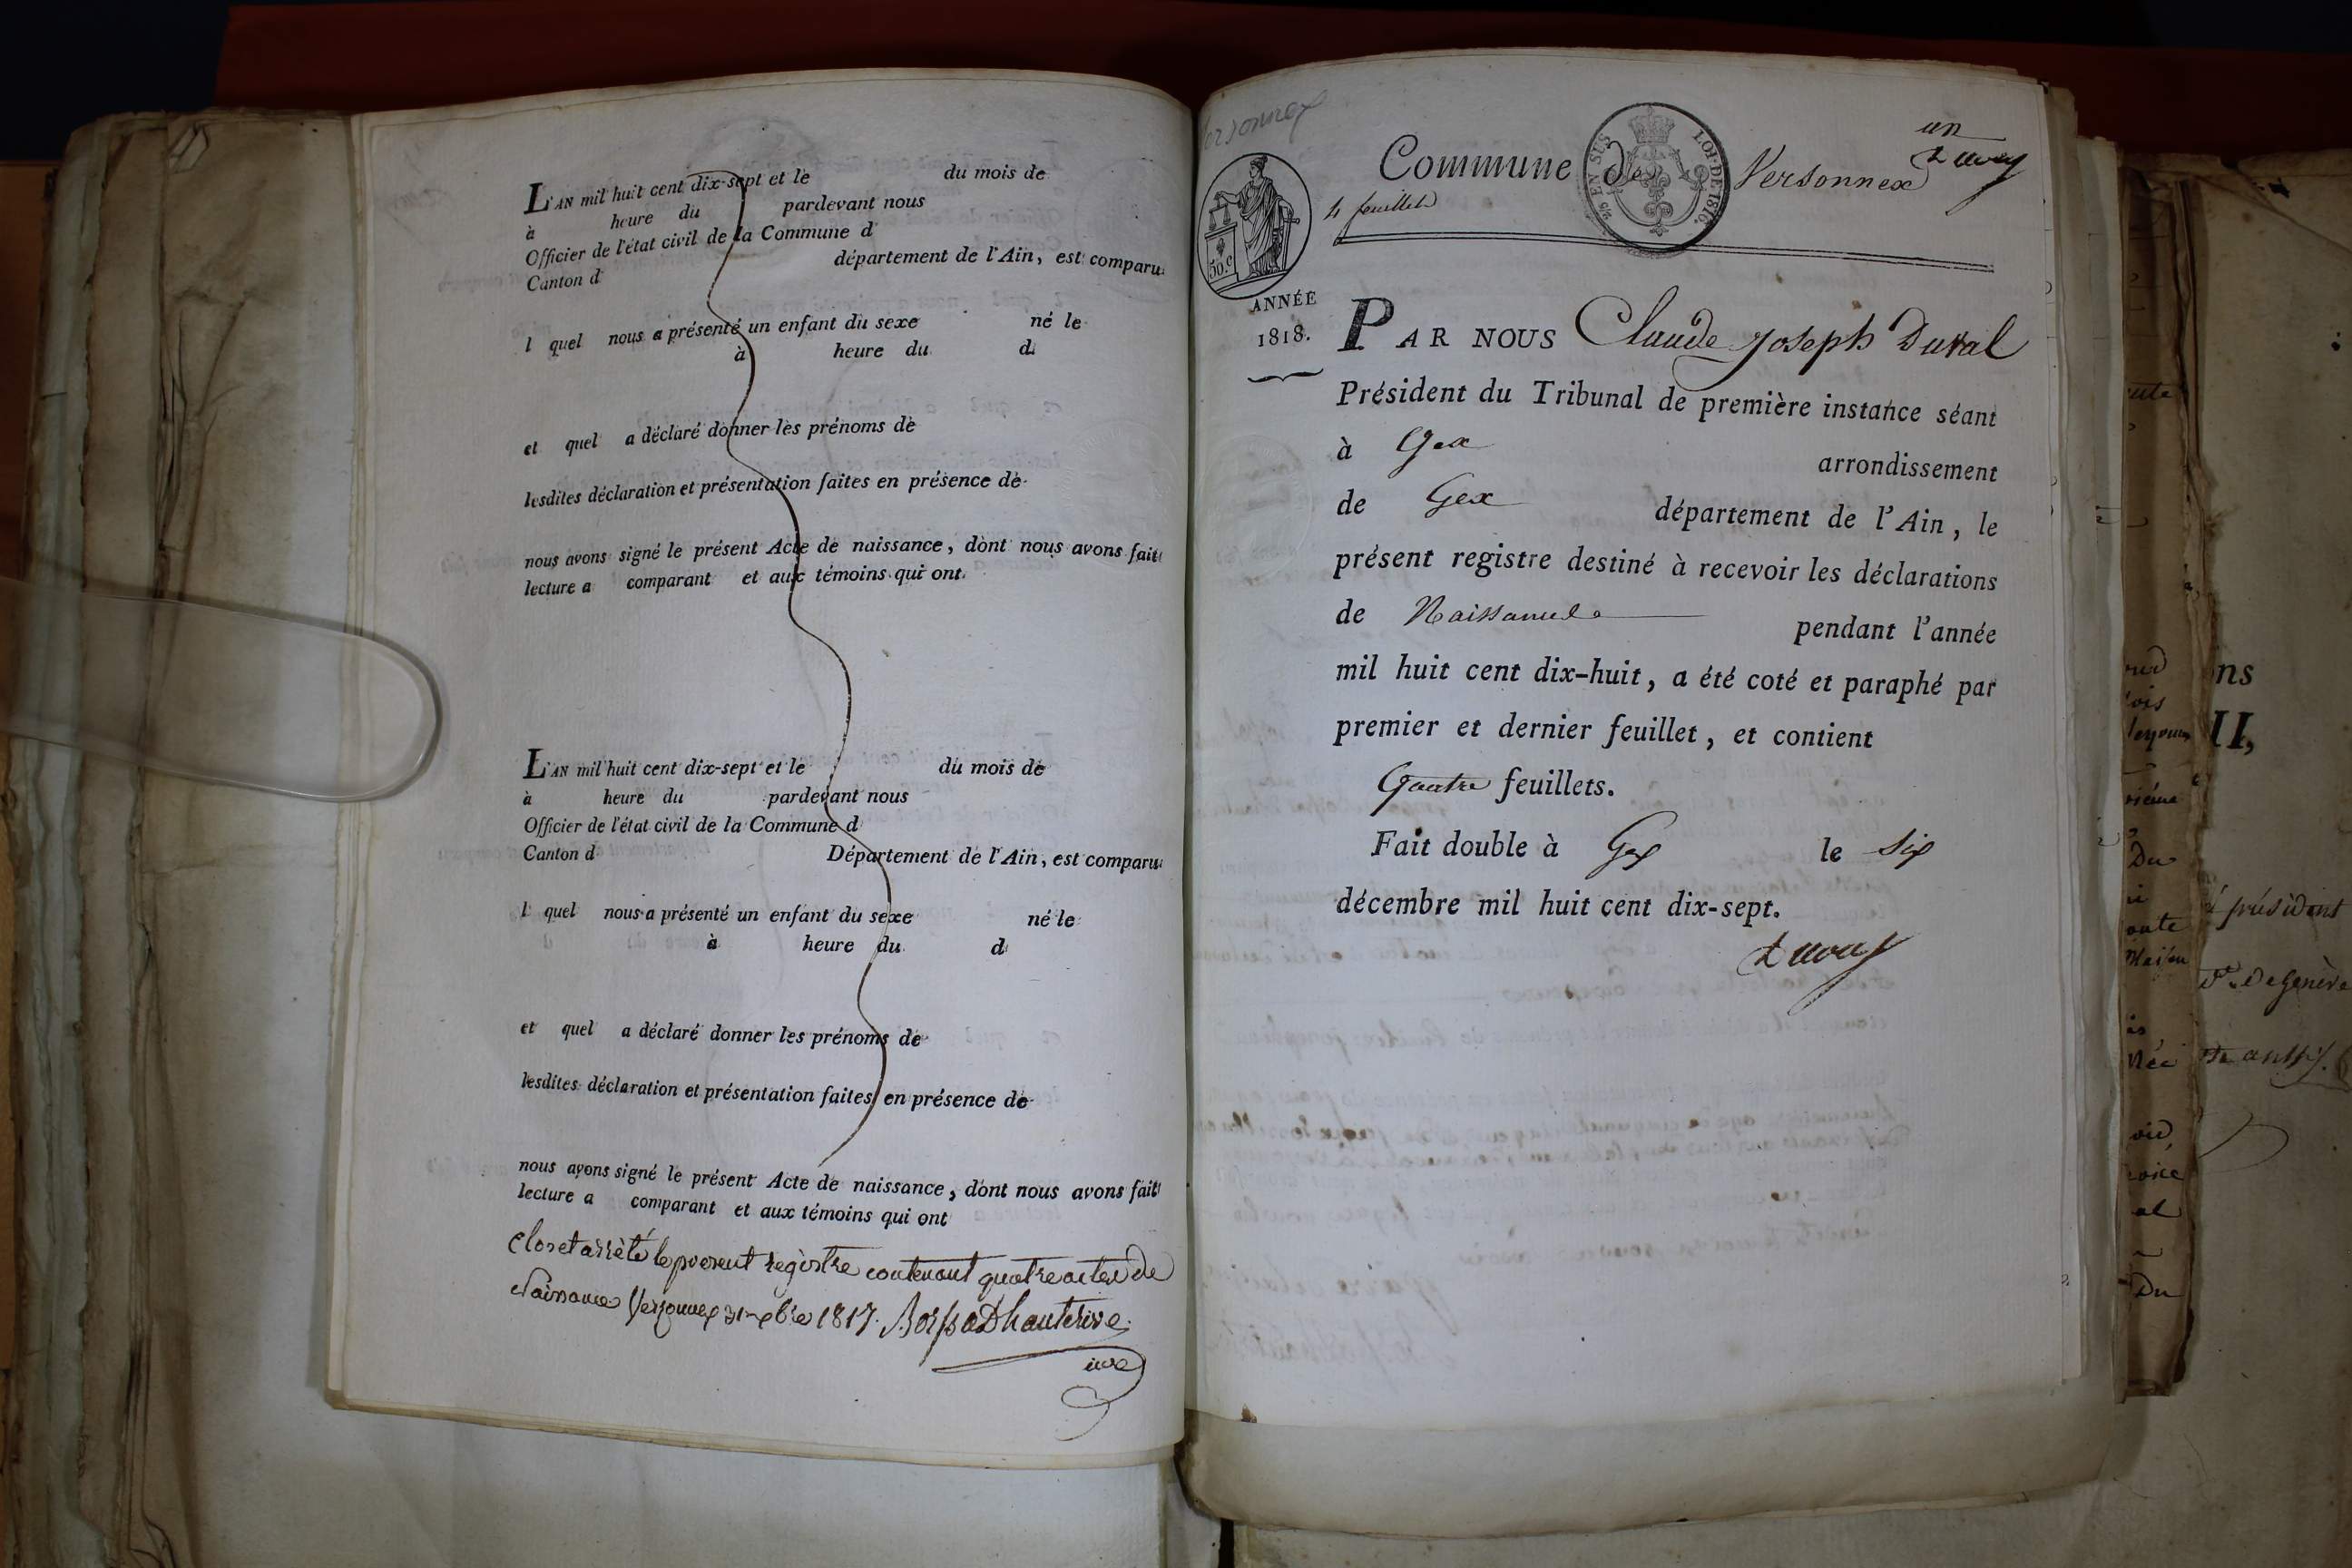 L'AN mil huit cent dix-sept et le du mois de
à heure du pardevant nous
Officier de l'état civil de la Commune d
Canton d département de l'Ain, est comparu
l quel nous a présenté un enfant du sexe né le
à heure du d
et quel a déclaré donner les prénoms de
lesdites déclaration et présentation faites en présence de
nous avons signé le présent Acte de naissance, dont nous avons fait
lecture a comparant et aux témoins qui ont
L'AN mil huit cent dix-sept et le du mois de
à heure du pardevant nous
Officier de l'état civil de la Commune d
Canton d Département de l'Ain, est comparu
l quel nous a présenté un enfant du sexe né le
à heure du d
et quel a déclaré donner les prénoms de
lesdites déclaration et présentation faites en présence de
nous avons signé le présent Acte de naissance, dont nous avons fait
lecture a comparant et aux témoins qui ont
Clos et arrêté le present registre contenant quatre actes de
Naissance Versonnex 31 Xbre 1817.
un
Commune de Versonnex
25 EN SUS LOI DE 1816.
4 feuillets
50.c
ANNÉE
1818.
PAR NOUS Claude Joseph Duval
Président du Tribunal de première instance séant
à Gex arrondissement
de Gex département de l'Ain, le
présent registre destiné à recevoir les déclarations
de Naissances pendant l'année
mil huit cent dix-huit, a été coté et paraphé par
premier et dernier feuillet, et contient
Quatre feuillets.
Fait double à Gex le six
décembre mil huit cent dix-sept.
Duval
ns
II,
président
De Genève